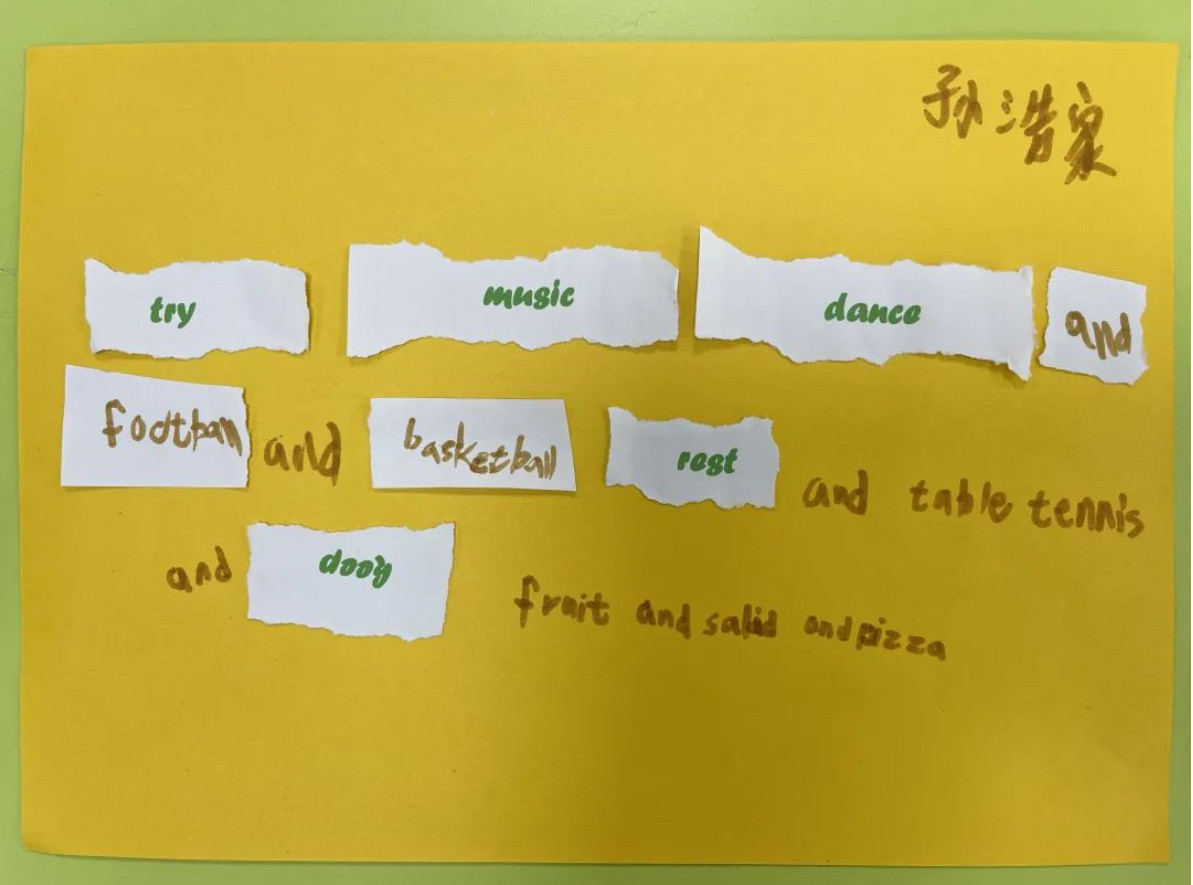 孙浩家
try music dance and
football and basketball rest and table tennis
and food fruit and salid and pizza